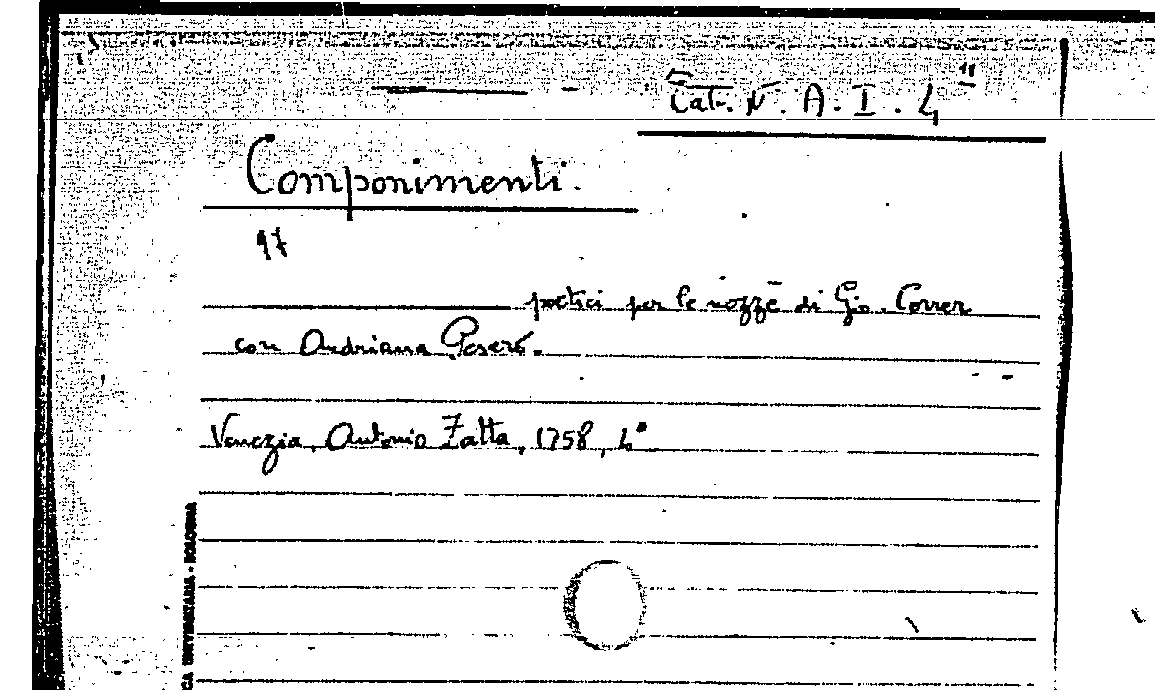 Cat. N. A. I. 4
Componimenti.
97
poetici per le nozze di Gio. Correr
con Andriana Pesero.
Venezia, Antonio Zatta, 1758, 4°
CA UNIVERSITARIA - BOLOGNA